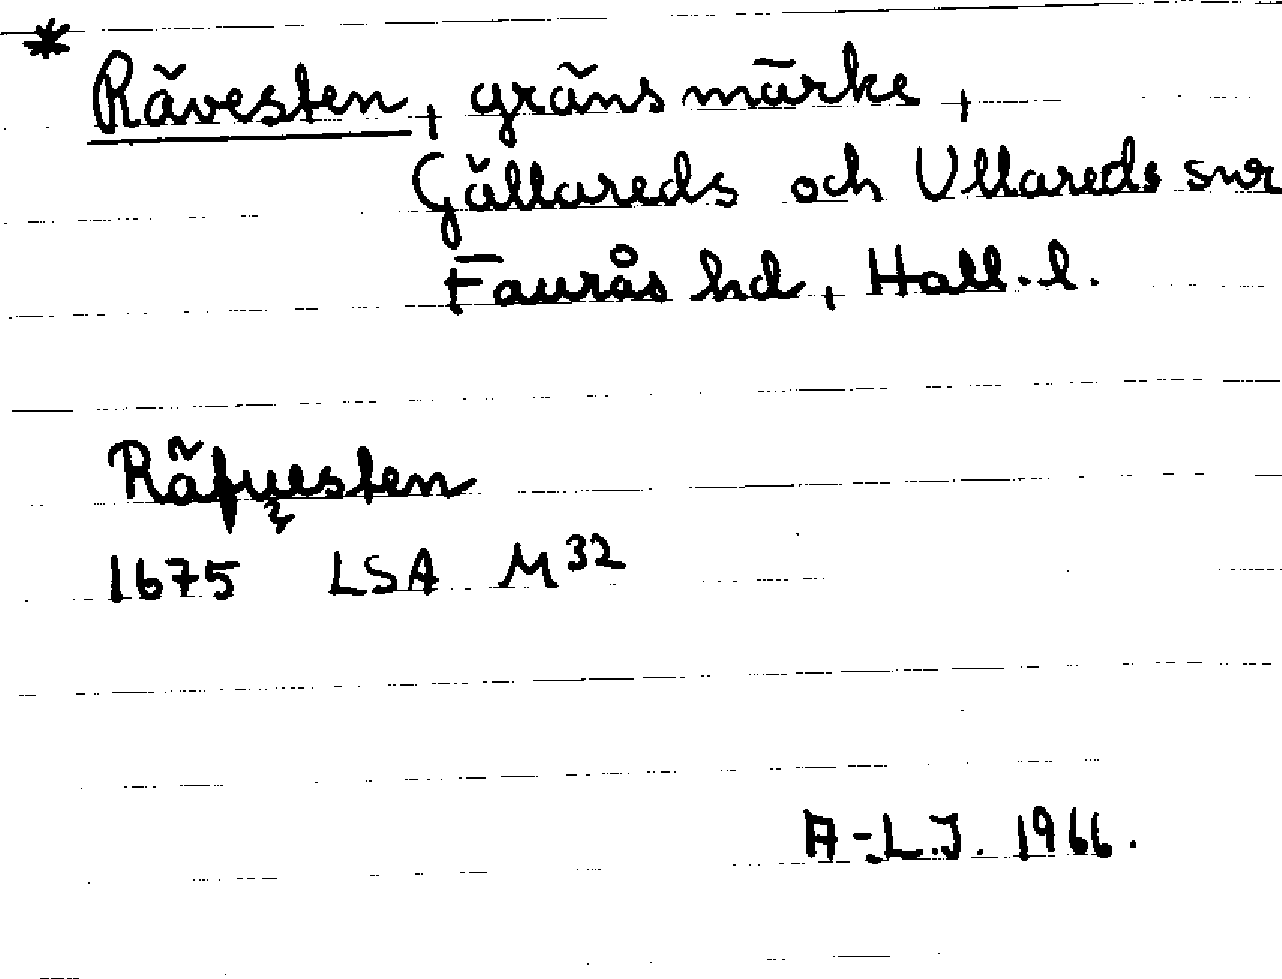 * Rävesten, gränsmärke,
Gällareds och Ullareds snr
Faurås hd, Hall. l.
Räfvesten
1675 LSA M32
A-L.J. 1966.